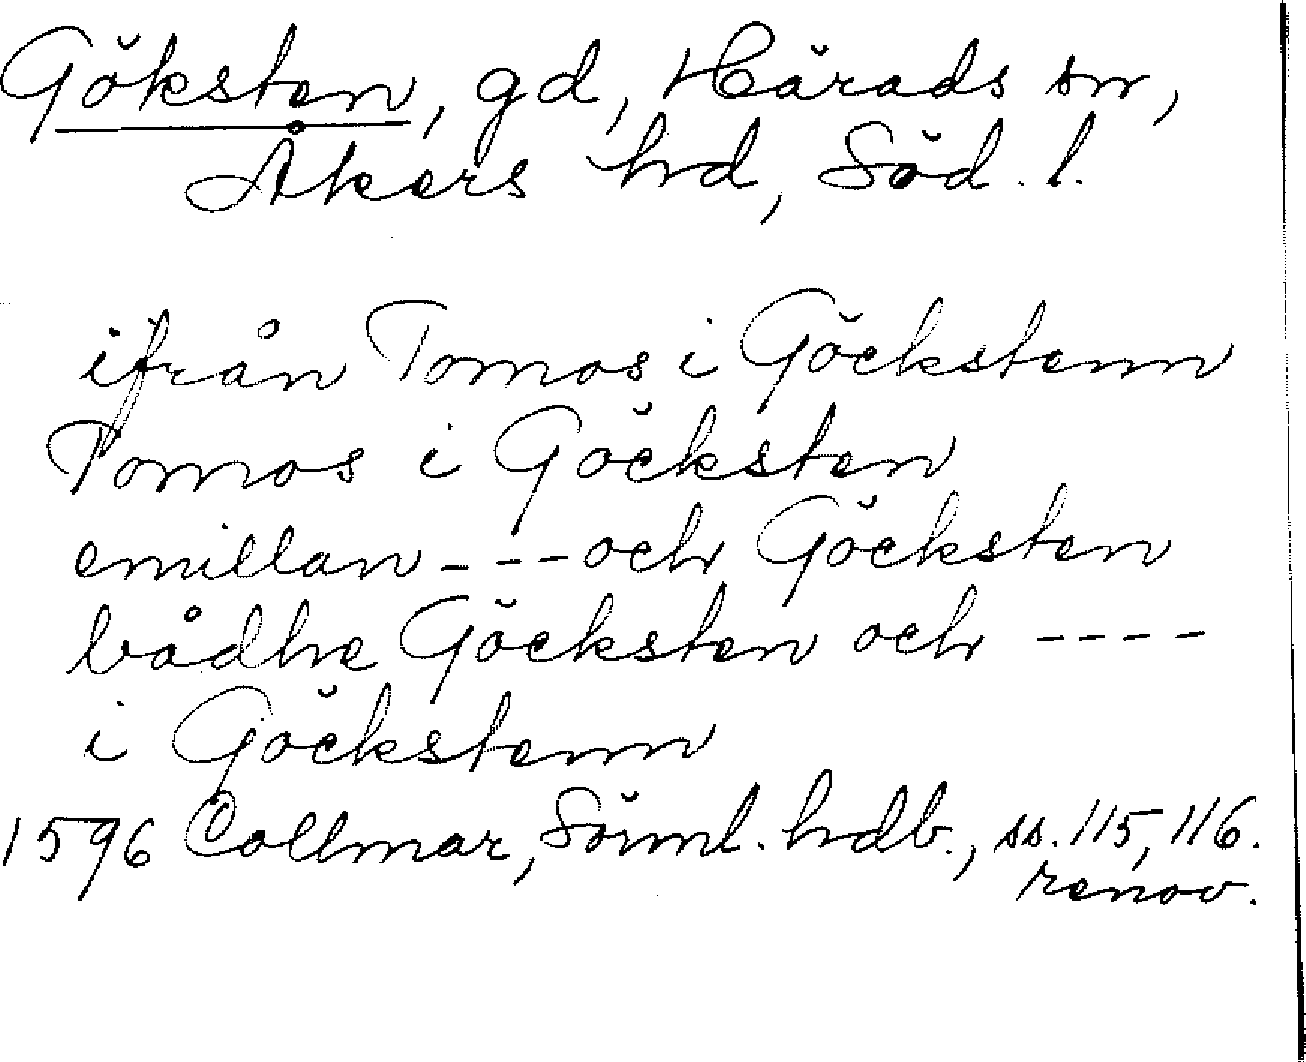 Göksten, gd, Härads sn,
Åkers hd, Söd. l.
ifrån Tomos i Göckstenn
Tomos i Göcksten
emillan - - - och Göcksten
bådhe Göcksten och - - - -
i Göckstenn
1596 Collmar, Sörml. hdb., ss. 115, 116.
renov.